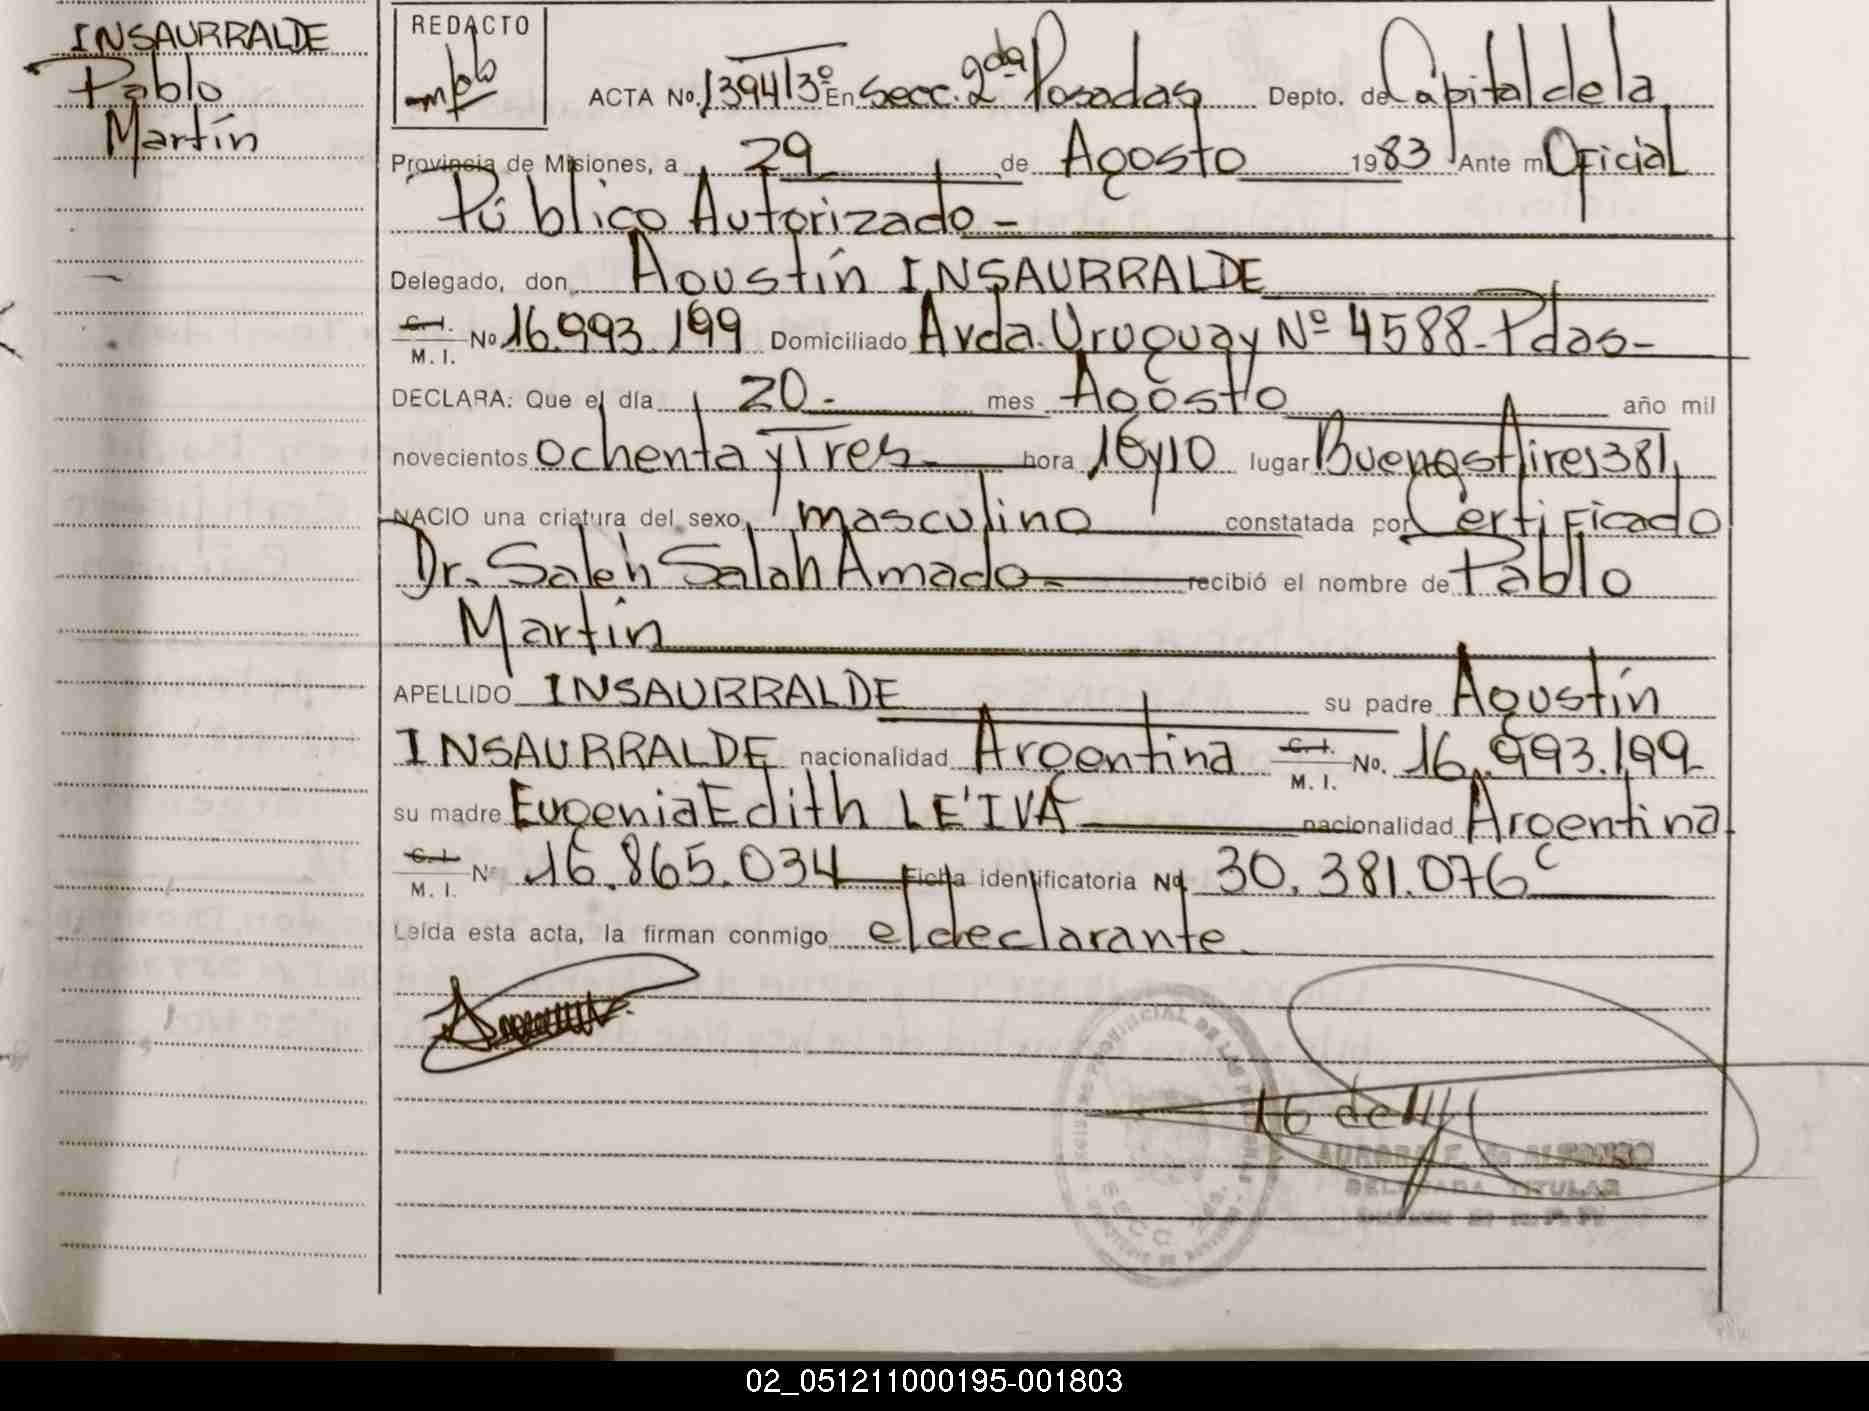 INSAURRALDE
Pablo
Martín
REDACTO
ACTA No. 1394 T3º En Secc. 2da Posadas Depto. de Capital de la
Provincia de Misiones, a 29 de Agosto 1983 Ante mí Oficial
Público Autorizado -
Delegado, don Agustín INSAURRALDE
C. I. M. I. No 16.993.199 Domiciliado Avda. Uruguay Nº 4588 - Pdas -
DECLARA: Que el día 20 - mes Agosto año mil
novecientos ochenta y Tres - hora 16 y 10 lugar Buenos Aires 381,
NACIO una criatura del sexo masculino constatada por Certificado
Dr. Saleh Salah Amado - recibió el nombre de Pablo
Martín
APELLIDO INSAURRALDE su padre Agustín
INSAURRALDE nacionalidad Argentina C. I. M. I. No. 16.993.199
su madre Eugenia Edith LEIVA nacionalidad Argentina
C. I. M. I. Nº 16.865.034 Ficha identificatoria Nº 30.381.076 C
Leída esta acta, la firman conmigo el declarante
PROVINCIAL DE LAS
AURORA F. de ALFONSO
DELEGADA TITULAR
02_051211000195-001803